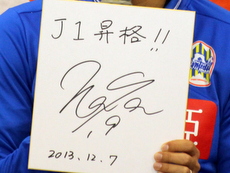 J1昇格!!
19
2013.12.7